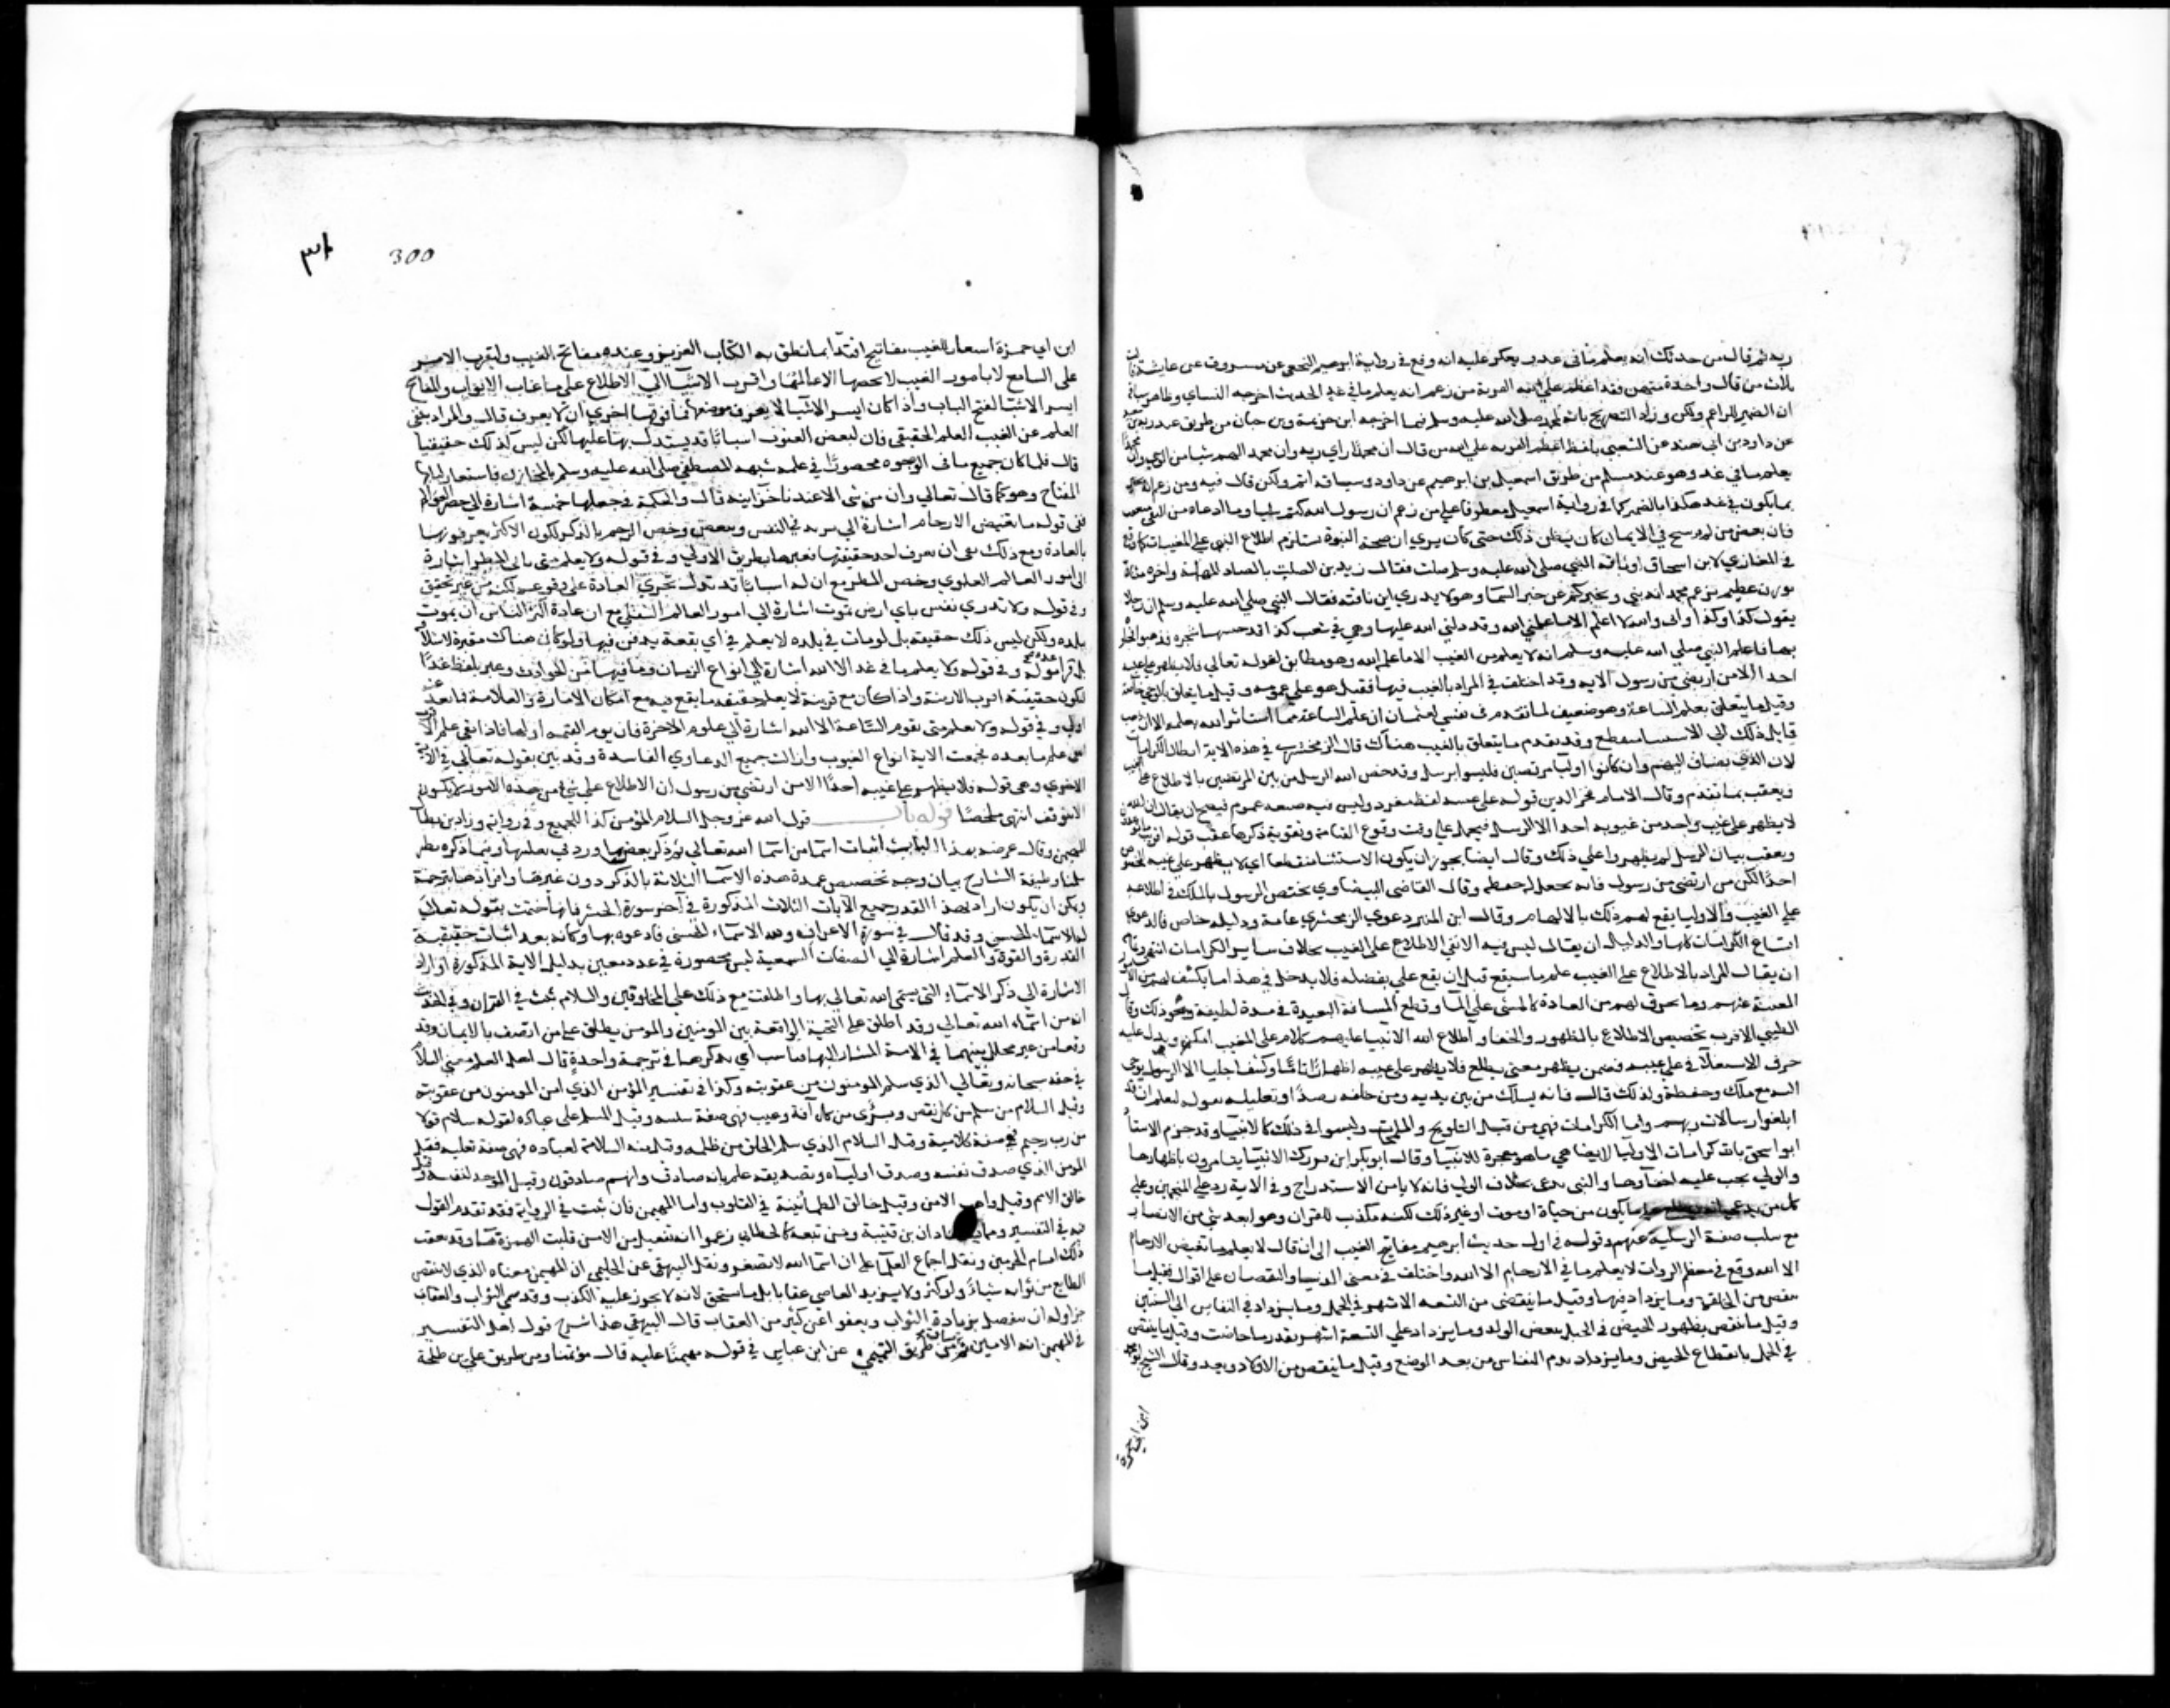 ريد ثم قال من حدثك انه يعلم ما في غد ويعكر عليه انه وقع في رواية ابرهيم النخعي عن مسروق عن عايشة قالت
ثلاث من قال واحدة منهن فقد اعظم على الله الفرية من زعم انه يعلم ما في غد الحديث اخرجه النساي وظاهر
ان الضمير للزاعم ولكن وزاد التصريح بانه لمحمد صلى الله عليه وسلم فيما اخرجه ابن خزيمة وبن حبان من طريق عبد ربه بن
عن داود بن ابي هند عن الشعبي بلفظ اعظم الفرية على الله من قال ان محمدا راي ربه وان محمدا كتم شيا من الوحي وان
يعلم ما في غد وهو عند مسلم من طريق اسمعيل بن ابرهيم عن داود وسياقه اتم ولكن قال فيه ومن زعم انه
بما يكون في غد هكذا بالضمير كما في رواية اسمعيل معطوفا على من زعم ان رسول الله كتم شيا وما ادعاه من النفي
فان بعض من لم يرسخ في الايمان كان يظن ذلك حتى كان يري ان صحة النبوة تستلزم اطلاع النبي على المغيبات كما وقع
في المغازي لابن اسحاق ان ناقة النبي صلى الله عليه وسلم ضلت فقال زيد بن الصليت بالصاد المهملة واخره مثناة
بوزن عظيم يزعم محمد انه نبي ويخبركم عن خبر السما وهو لا يدري اين ناقته فقال النبي صلى الله عليه وسلم ان رجلا
يقول كذا وكذا واني والله لا اعلم الا ما علمني الله وقد دلني الله عليها وهي في شعب كذا قد حبستها شجرة فذهبوا فجاوه
بها فاعلم النبي صلى الله عليه وسلم انه لا يعلم من الغيب الا ما علمه الله وهو مطابق لقوله تعالى فلا يظهر على غيبه
احدا الا من ارتضى من رسول الاية وقد اختلف في المراد بالغيب فيها فقيل هو على عمومه وقيل ما يتعلق بالوحي خاصة
وقيل ما يتعلق بعلم الساعة وهو ضعيف لما تقدم في تفسير لقمان ان علم الساعة مما استاثر الله بعلمه الا ان ذهب
قايل ذلك الي الاستثنا منقطع وقد تقدم ما يتعلق بالغيب هناك قال الزمخشري في هذه الاية ابطال الكرامات
لان الذي يضاف اليهم وان كانوا اوليا مرتضين فليسوا برسل وقد خص الله الرسل من بين المرتضين بالاطلاع على الغيب
وتعقب بما تقدم وقال الامام فخر الدين قوله على غيبه لفظ مفرد وليس فيه صيغة عموم فيصح ان يقال ان الله
لا يظهر على غيب واحد من غيوبه احدا الا الرسل فيحمل على وقت وقوع القيامة ويقويه ذكرها عقب قوله اقريب ما توعدون
وتعقب بان الرسل لم يظهروا على ذلك وقال ايضا يجوز ان يكون الاستثنا منقطعا اي لا يظهر على غيبه المخصوص
احدا لكن من ارتضى من رسول فانه يجعل له حفظة وقال القاضي البيضاوي يختص الرسول بالملك في اطلاعه
على الغيب والاوليا يقع لهم ذلك بالالهام وقال ابن المنير دعوي الزمخشري عامة ودليله خاص فالدعوي
امتناع الكرامات كلها والدليل ان يقال ليس فيه الا نفي الاطلاع على الغيب بخلاف ساير الكرامات انتهى وتمام
ان يقال المراد بالاطلاع على الغيب علم ما سيقع قبل ان يقع على تفصيله فلا يدخل في هذا ما يكشف لهم من الامور
المغيبة عنهم وما يخرق لهم من العادة كالمشي على الما وقطع المسافة البعيدة في مدة لطيفة ونحو ذلك وقال
الطيبي الاقرب تخصيص الاطلاع بالظهور والخفا واطلاع الله الانبيا عليهم السلام على المغيب امكن ويدل عليه
حرف الاستعلا في على غيبه فضمن يظهر معنى يطلع فلا يظهر على غيبه اظهارا تاما وكشفا جليا الا لرسول يوحى
اليه مع ملك وحفظة ولذلك قال فانه يسلك من بين يديه ومن خلفه رصدا وتعليله بقوله ليعلم ان قد
ابلغوا رسالات ربهم واما الكرامات فهي من قبيل التلويح واللمحات وليسوا في ذلك كالانبيا وقد جزم الاستاذ
ابو اسحق بان كرامات الاوليا لا تضاهي ما هو معجزة للانبيا وقال ابو بكر ابن فورك الانبيا يامرون باظهارها
والولي يجب عليه اخفاوها والنبي يدعي بخلاف الولي فانه لا يامن الاستدراج وفي الاية رد على المنجمين وعلى
كل من يدعي انه يطلع على ما يكون من حياة او موت او غير ذلك لكنه مكذب للقران وهو ابعد شي من الارتضا
مع سلب صفة الرسلية عنهم وقوله في اول حديث ابرهيم مفاتيح الغيب الى ان قال لا يعلم ما تغيض الارحام
الا الله وقع في معظم الروايات لا يعلم ما في الارحام الا الله واختلف في معنى الزيادة والنقصان على اقوال فقيل ما
ينقص من الخلقة وما يزداد فيها وقيل ما ينقص من التسعة الاشهر في الحمل وما يزداد في النفاس الى الستين
وقيل ما ينقص بظهور الحيض في الحبل ببعض الولد وما يزداد على التسعة اشهر بقدر ما حاضت وقيل ما ينقص
في الحمل بانقطاع الحيض وما يزداد بدم النفاس من بعد الوضع وقيل ما ينقص من الاولاد وبعد وقال الشيخ ابو محمد
ابن ابي جمرة
300
ابن ابي حمزة استعار للغيب مفاتيح اقتدا بما نطق به الكتاب العزيز وعنده مفاتح الغيب وليقرب الامر
على السامع لان امور الغيب لا يحصيها الا عالمها واقرب الاشيا الي الاطلاع على ما غاب الابواب والمفاتح
ايسر الاشيا لفتح الباب واذا كان ايسر الاشيا لا يعرف موضعها فما فوقها احري ان لا يعرف قال والمراد بنفي
العلم عن الغيب العلم الحقيقي فان لبعض الغيوب اسبابا قد يستدل بها عليها لكن ليس ذلك حقيقيا
قال فلما كان جميع ما في الوجود محصورا في علمه شبهه المصطفى صلى الله عليه وسلم بالمخازن فاستعار لبابها
المفتاح وهو كما قال تعالى وان من شي الا عندنا خزاينه قال والحكمة في جعلها خمسة اشارة الي حصر العوالم
ففي قوله ما تغيض الارحام اشارة الى ما يزيد في النفس وينقص وخص الرحم بالذكر لكون الاكثر يعرفونها
بالعادة ومع ذلك نفى ان يعرف احد حقيقتها فغيرها بطريق الاولى وفي قوله ولا يعلم متى ياتي المطر اشارة
الى امور العالم العلوي وخص المطر مع ان له اسبابا قد تدل بجري العادة على وقوعه لكنه من غير تحقيق
وفي قوله ولا تدري نفس باي ارض تموت اشارة الي امور العالم السفلي مع ان عادة اكثر الناس ان يموت
ببلده ولكن ليس ذلك حقيقة بل لو مات في بلده لا يعلم في اي بقعة يدفن فيها ولو كان هناك مقبرة لاسلافه
بل قبر اعده هو له وفي قوله ولا يعلم ما في غد الا الله اشارة الى انواع الزمان وما فيها من الحوادث وعبر بلفظ غد
لكون حقيقته اقرب الازمنة واذا كان مع قربه لا يعلم حقيقة ما يقع فيه مع امكان الامارة والعلامة فما بعد عنه
اولى وفي قوله ولا يعلم متى تقوم الساعة الا الله اشارة الي علوم الاخرة فان يوم القيمة اولها فاذا نفى علم الاقرب
نفى علم ما بعده فجمعت الاية انواع الغيوب وازالت جميع الدعاوي الفاسدة وقد بين بقوله تعالى في الاية
الاخري وهي قوله فلا يظهر على غيبه احدا الا من ارتضى من رسول ان الاطلاع على شي من هذه الامور لا يكون
الا بتوقيف انتهى ملخصا قوله باب قول الله عز وجل السلام المؤمن كذا للجميع وزاد بن بطال
المهيمن وقال غرضه بهذا الباب اثبات اسما من اسما الله تعالى ثم ذكر بعض ما ورد في معانيها وفيما ذكره نظر
سلمنا وظيفة الشارح بيان وجه تخصيص هذه الاسما الثلاثة بالذكر دون غيرها وافرادها بترجمة
ويمكن ان يكون اراد بهذا القدر جميع الايات الثلاث المذكورة في آخر سورة الحشر فانها ختمت بقوله تعالى
له الاسماء الحسنى وقد قال في سورة الاعراف ولله الاسماء الحسنى فادعوه بها وكانه بعد اثبات حقيقة
القدرة والقوة والعلم اشارة الي الصفات السمعية ليس محصورة في عدد معين بدليل الاية المذكورة او اراد
الاشارة الي ذكر الاسماء التي يسمى الله تعالى بها واطلقت مع ذلك على المخلوقين والسلام ثبت في القران وفي الحديث
انه من اسماء الله تعالى وقد اطلق على التحية الواقعة بين المومنين والمومن يطلق على من اتصف بالايمان وقد
وقعا من غير تخلل بينهما في الاية المشار اليها فناسب ان يذكرهما في ترجمة واحدة قال اهل العلم معنى السلام
في حقه سبحانه وتعالى الذي سلم المومنون من عقوبته وكذا في تفسير المؤمن الذي امن المومنون من عقوبته
وقيل السلام من سلم من كل نقص وبرئ من كل آفة وعيب فهي صفة سلبية وقيل المسلم على عباده لقوله سلام قولا
من رب رحيم فهي صفة كلامية وقيل السلام الذي سلم الخلق من ظلمه وقيل منه السلامة لعباده فهي صفة فعلية وقيل
المومن الذي صدق نفسه وصدق اولياه وتصديقه علمه بانه صادق وانهم صادقون وقيل الموحد لنفسه وقيل
خالق الامن وقيل واهب الامن وقيل خالق الطمانينة في القلوب واما المهيمن فان ثبت في الرواية فقد تقدم القول
فيه في التفسير ومما ان بن قتيبة ومن تبعه كالخطابي زعموا انه مفيعل من الامن قلبت الهمزة هاء وقد تعقب
ذلك امام الحرمين ونقل اجماع العلما على ان اسما الله لا تصغر ونقل البيهقي عن الحليمي ان المهيمن معناه الذي لا ينقص
الطايع من ثوابه شياء ولو كثر ولا يزيد العاصي عقابا على ما يستحق لانه لا يجوز عليه الكذب وقد سمى الثواب والعقاب
جزا وله ان يتفضل بزيادة الثواب ويعفو عن كثير من العقاب قال البيهقي هذا شرح قول اهل التفسير
في المهيمن انه الامين ثم ساق من طريق التيمي عن ابن عباس في قوله مهيمنا عليه قال مؤتمنا ومن طريق علي بن طلحة